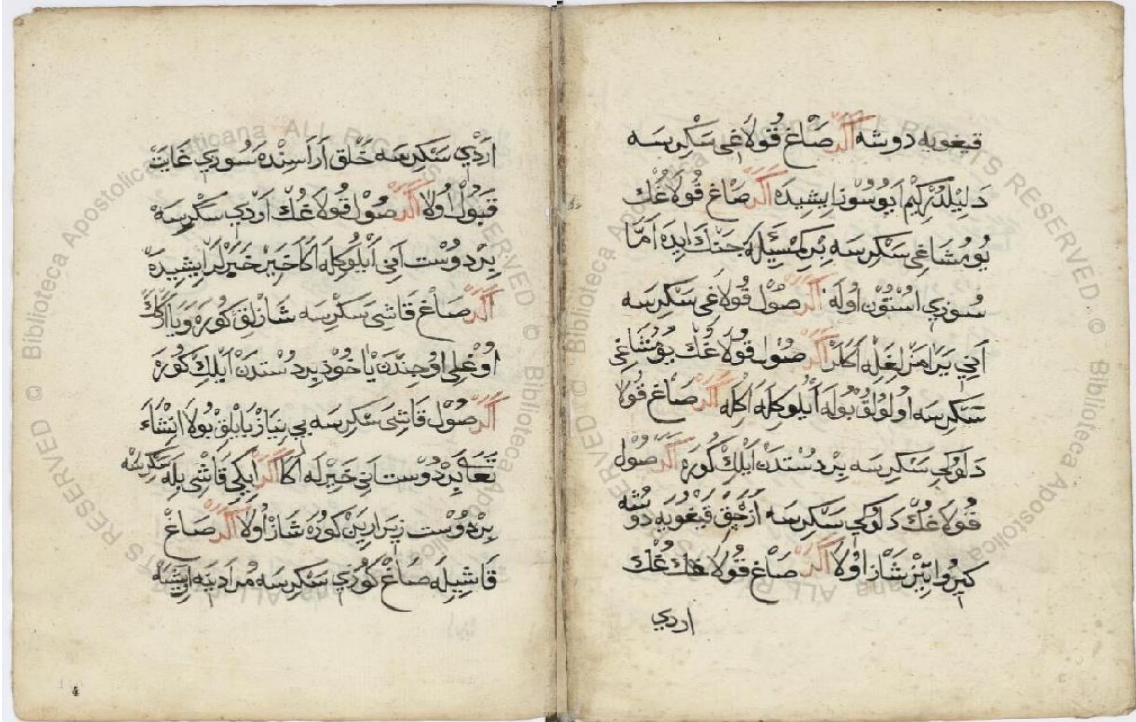 قيغويه دوشه اكر صاغ قولاغى سكرسه
دليلدر كيم ايو سوز ايشيده اكر صاغ قولاغك
يومشاغى سكرسه بر كمسيله جنك ايده اما
سوزي استون اوله اكر صول قولاغى سكرسه
انى يرامزلغله اكلر اكر صول قولاغك يومشاغى
سكرسه اولولق بوله ايلوكله اكله اكر صاغ قولا
دلوكي سكرسه بر دستدن ايلك كوره اكر صول
قولاغك دلوكي سكرسه ازجق قيغويه دوشه
كيرو تيز شاز اولا اكر صاغ قولاغك
اردي
اردي سكرسه خلق اراسنده سوزي غايت
قبول اولا اكر صول قولاغك اردي سكرسه
بر دوست اني ايلوكله اكا خير خبرلر ايشيده
اكر صاغ قاشى سكرسه شازلق كوره ويا اكاك
اوغلى اوجندن ياخوذ بر دستدن ايلك كوره
اكر صول قاشى سكرسه بي نياز بايلق بولا انشاء
تعالى بر دوست اني خبرله اكا اكر ايكي قاشى بله سكرسه
بر دوست زيرارين كوره شاز اولا اكر صاغ
قاشيله صاغ كوزي سكرسه مرادينه ايشه
4
© Biblioteca Apostolica Vaticana ALL RIGHTS RESERVED